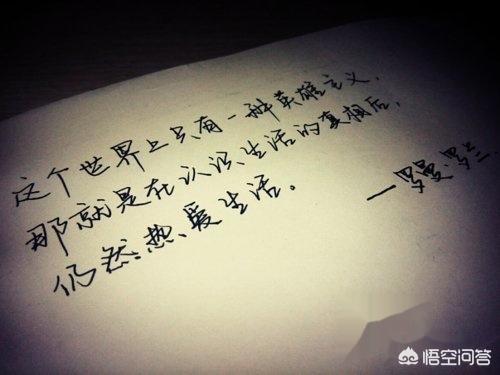 这个世界上只有一种英雄主义,
那就是在认识生活的真相后,
仍然热爱生活。
—罗曼·罗兰
悟空问答